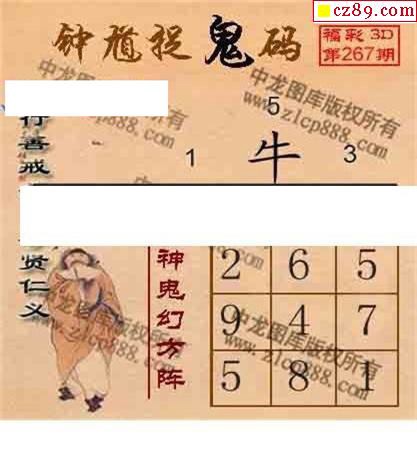 cz89.com
钟馗捉鬼码
福彩3D
第267期
5
1 牛 3
行善戒
贤仁义
神鬼幻方阵
2 6 5
9 4 7
5 8 1
中龙图库版权所有
www.zlcp888.com